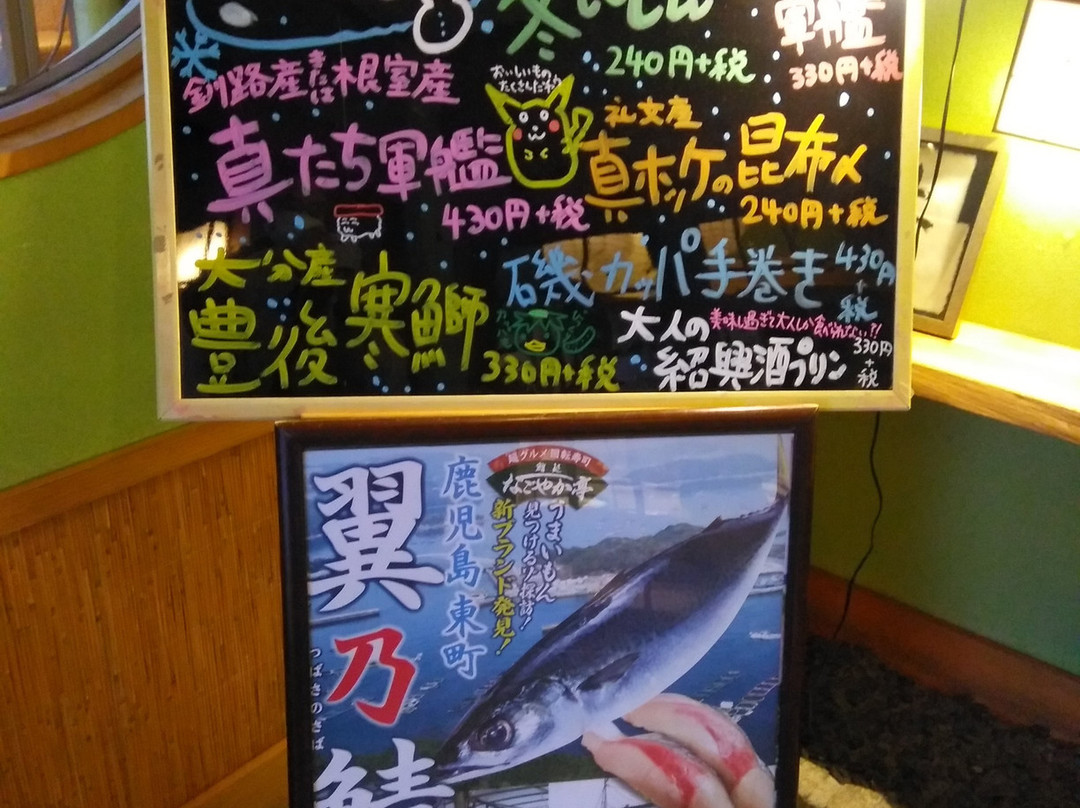 軍艦
240円+税
330円+税
釧路産または根室産
おいしいもの
たくさんだよ
真たち軍艦
430円+税
礼文産
真ホッケの昆布〆
240円+税
大分産
豊後寒鰤
330円+税
磯カッパ手巻き
430円
+
税
大人の
美味し過ぎて大人しか食べられない?!
紹興酒プリン
330円
+
税
超グルメ回転寿司
なごやか亭
うまいもん
見つけるゾ探訪!
新ブランド発見!
鹿児島東町
翼乃鯖
つばさのさば